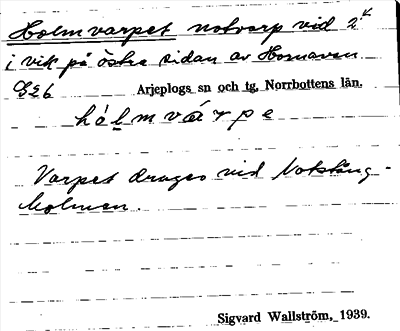 Holmvarpet notvarp vid 2
i vik på östra sidan av Hornavan
G26 Arjeplogs sn och tg. Norrbottens län.
hólmvárpe
Varpet drages vid Notstäng-
holmen.
Sigvard Wallström, 1939.